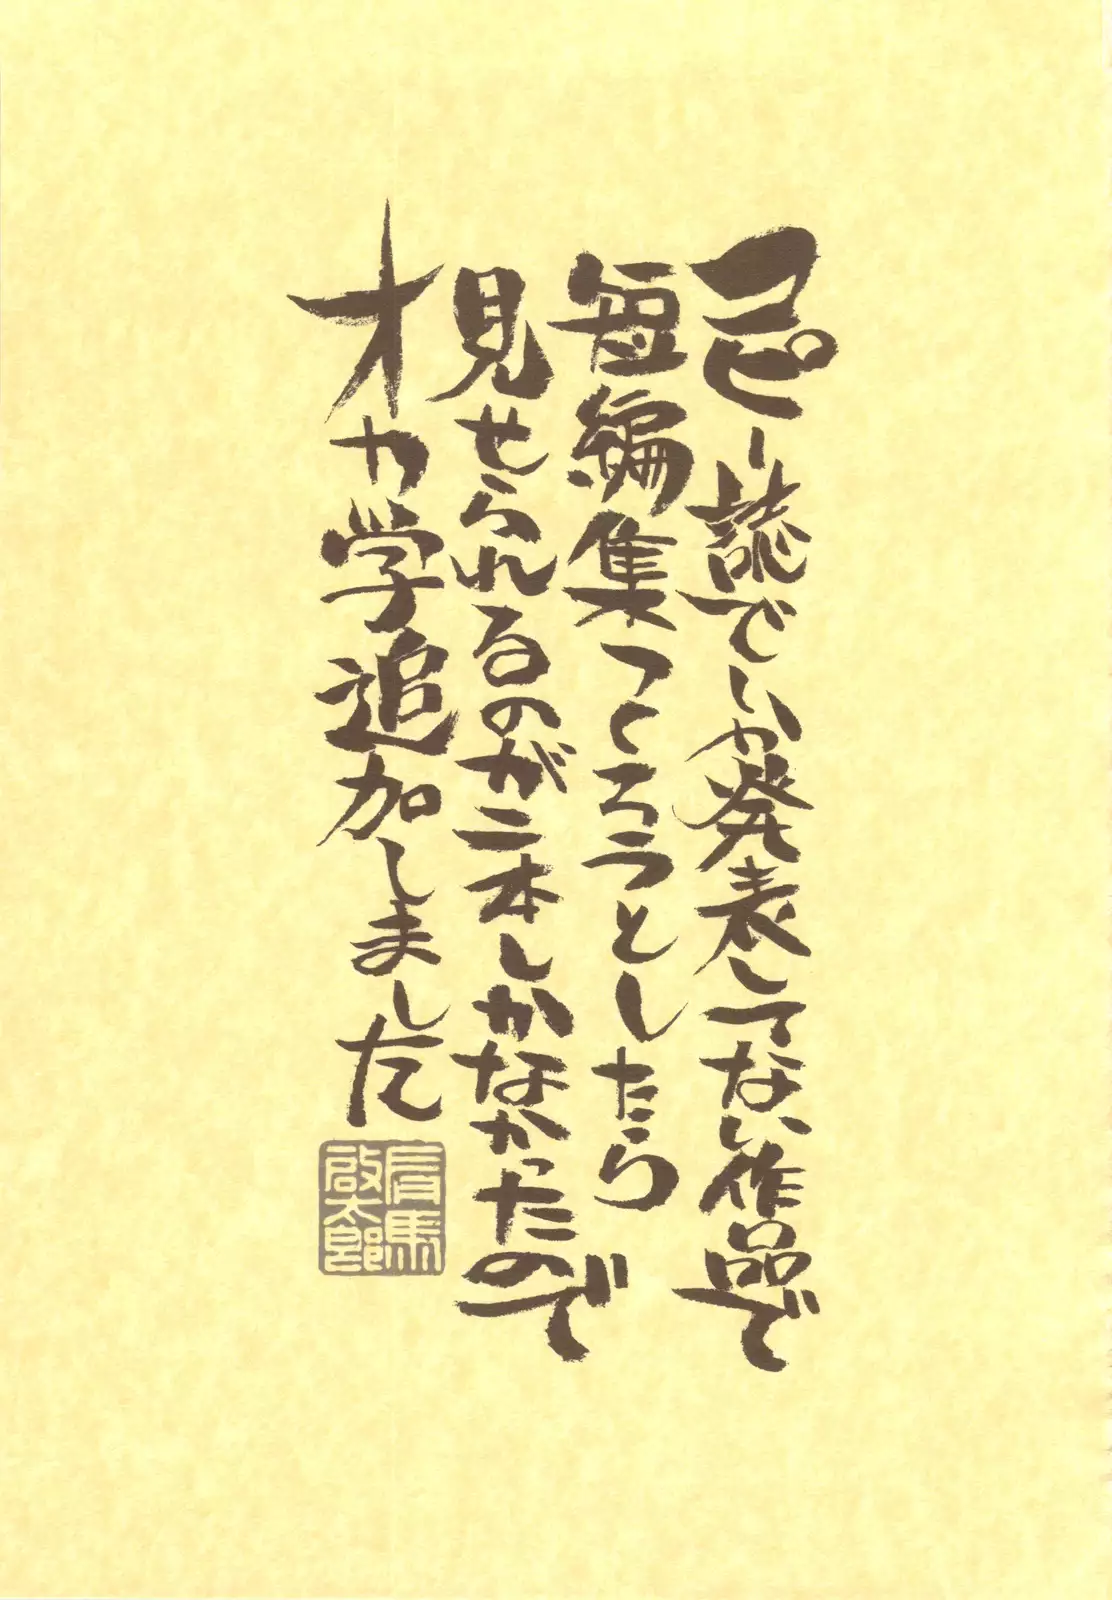 コピー誌でしか発表してない作品で
短編集つくろうとしたら
見せられるのが二本しかなかったので
オカ学追加しました
有馬
啟太郎